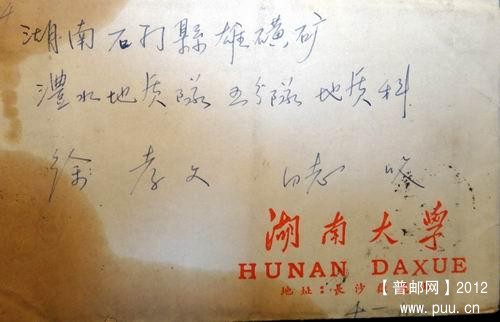 湖南石门縣雄磺矿
澧水地质隊五分隊地质科
徐孝文 同志 收
湖南大學
HUNAN DAXUE
地址：長沙
【普邮网】2012
www.puu.cn